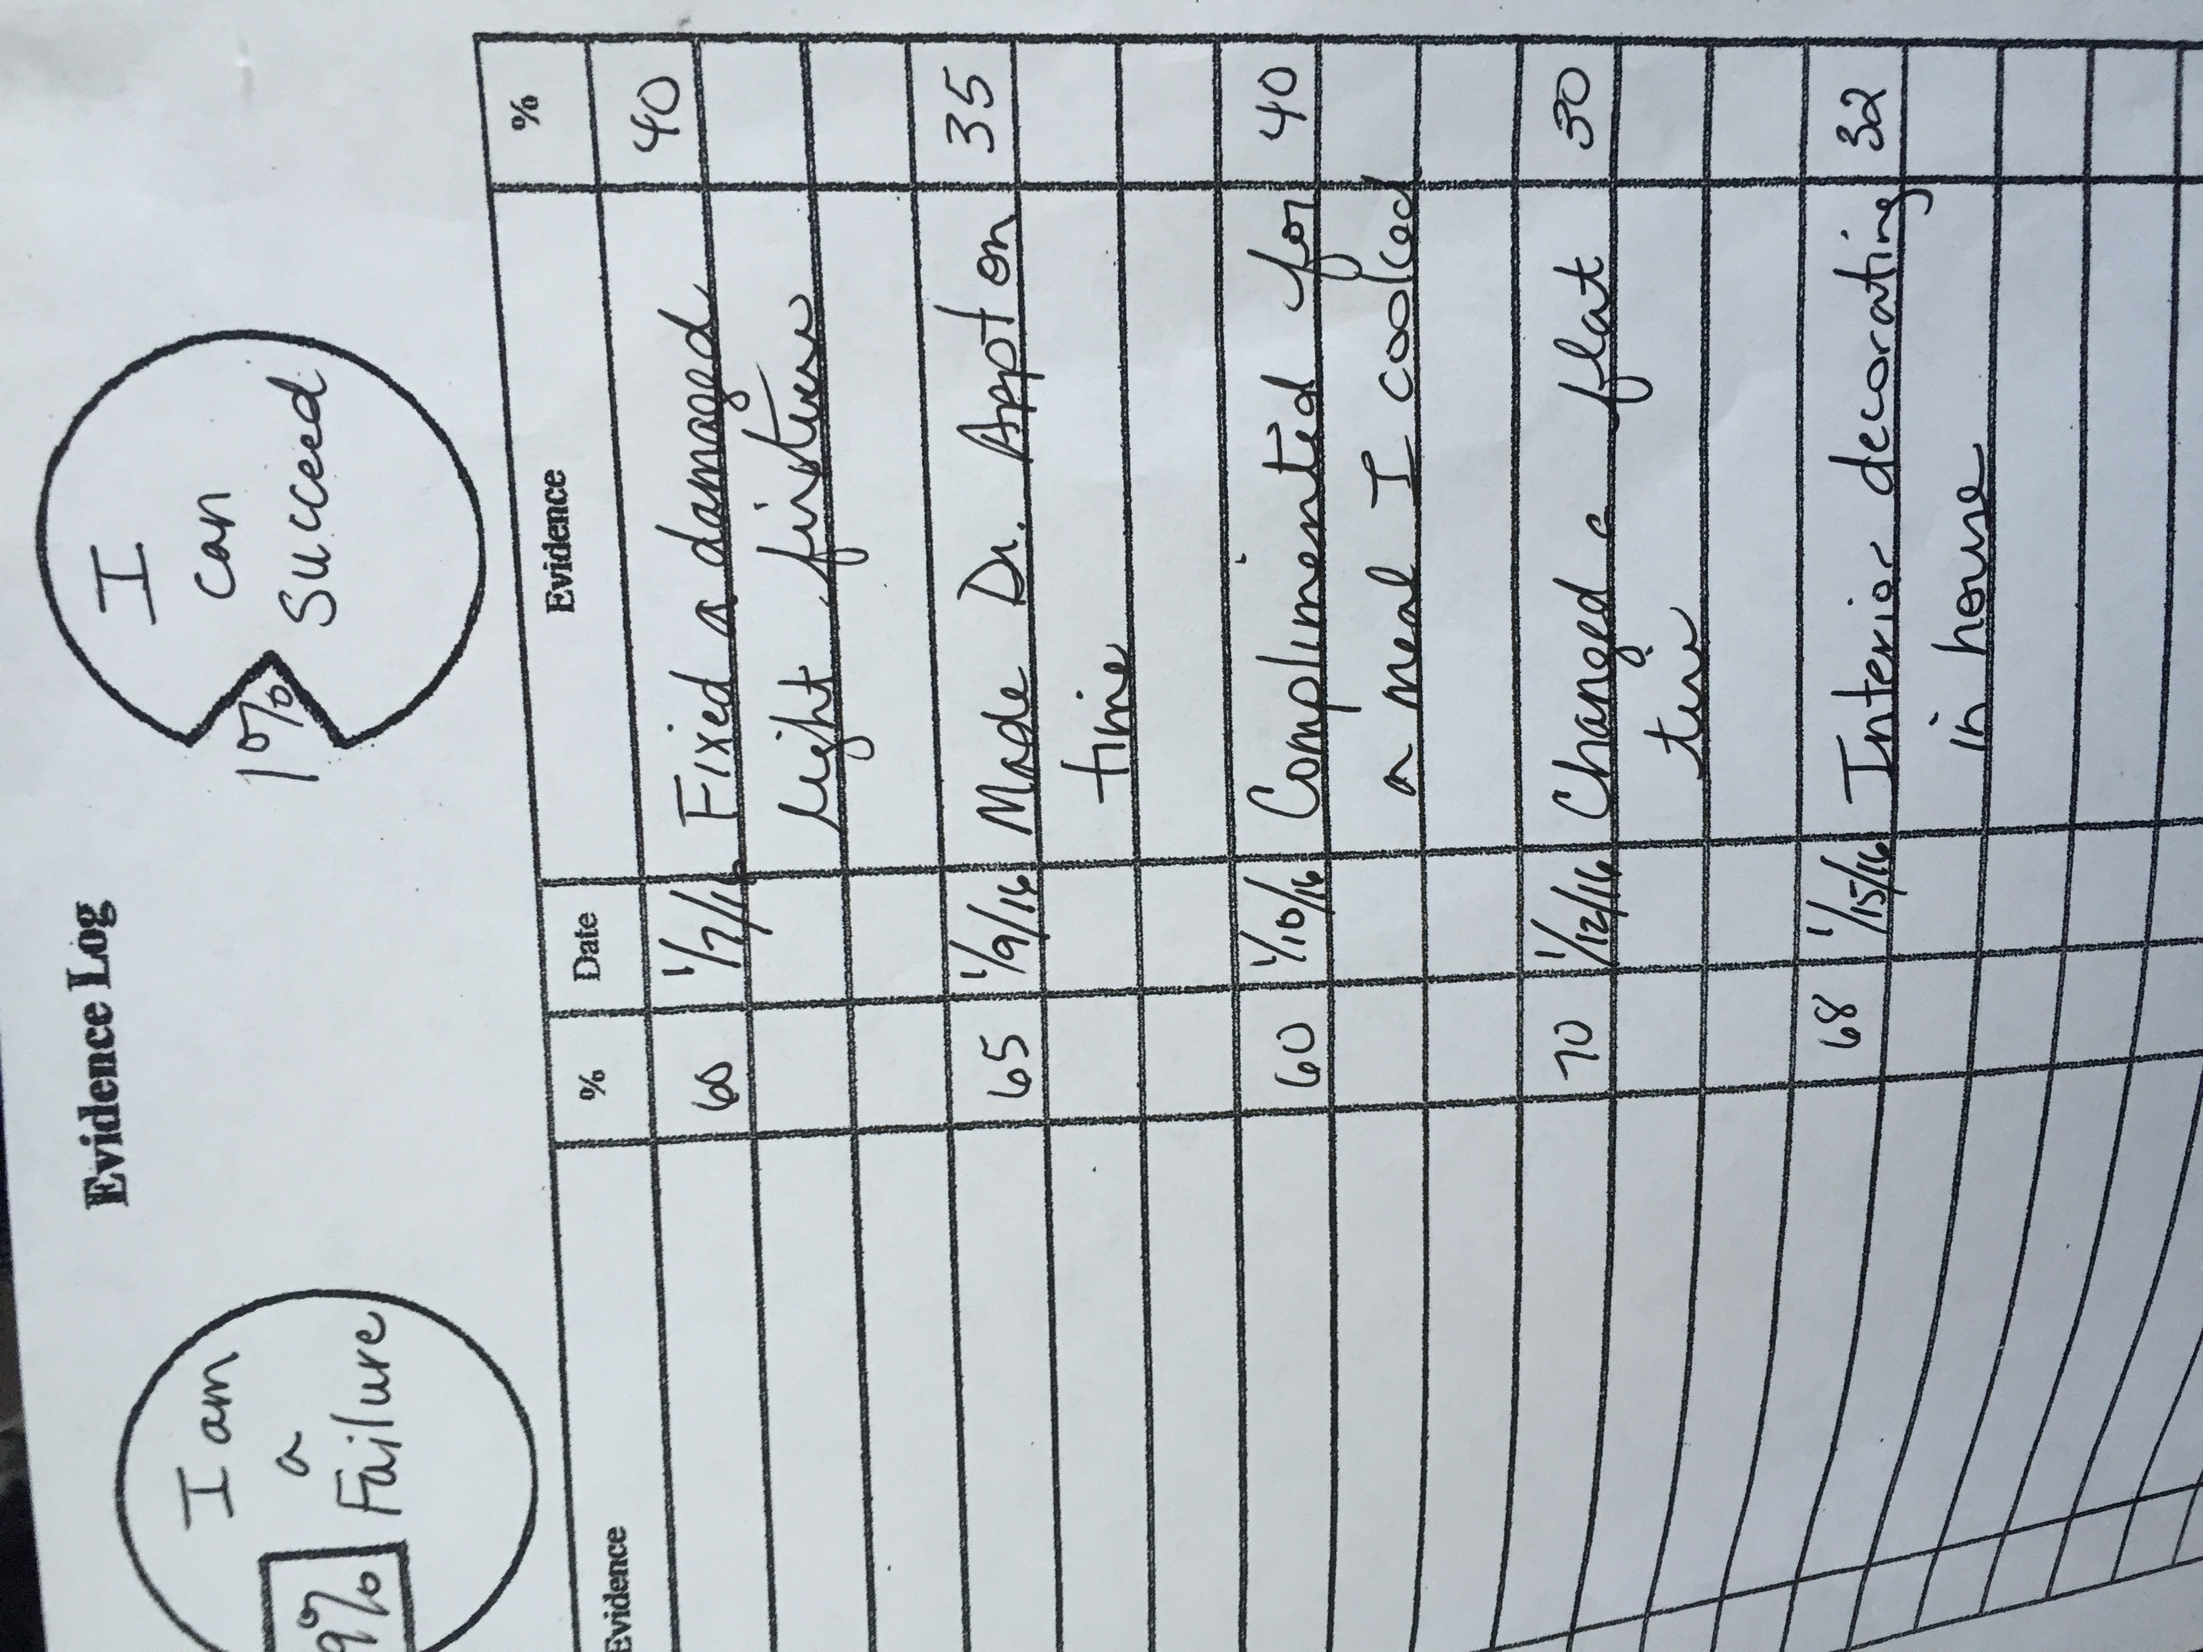 Evidence Log
I am
a
Failure
9%
I
can
Succeed
1%
Evidence % Date Evidence %
60 1/7/16 Fixed a damaged 40
light fixture
65 1/9/16 Made Dr. Appt on 35
time
60 1/10/16 Complimented for 40
a meal I cooked
70 1/12/16 Changed a flat 30
tire
68 1/15/16 Interior decorating 32
in house